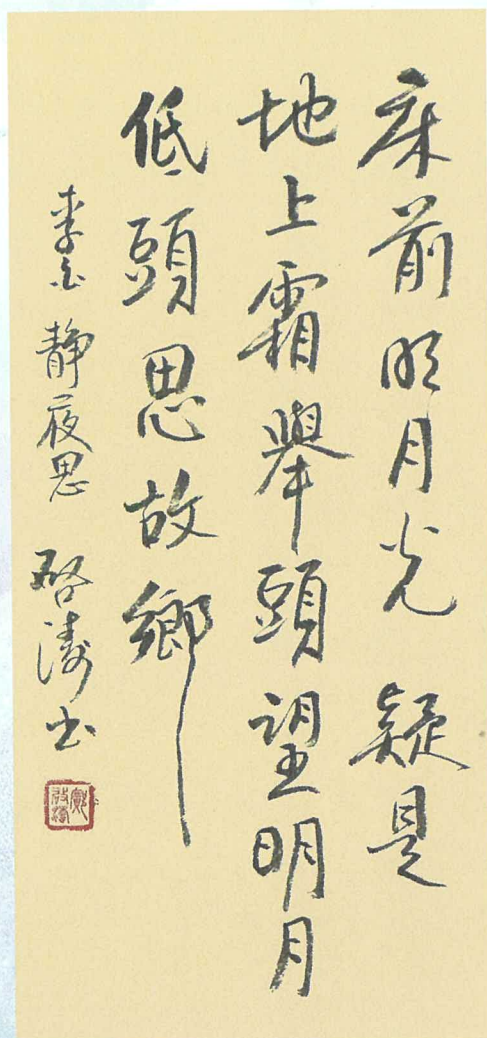 床前明月光疑是
地上霜舉頭望明月
低頭思故鄉
李白靜夜思 啓濤书